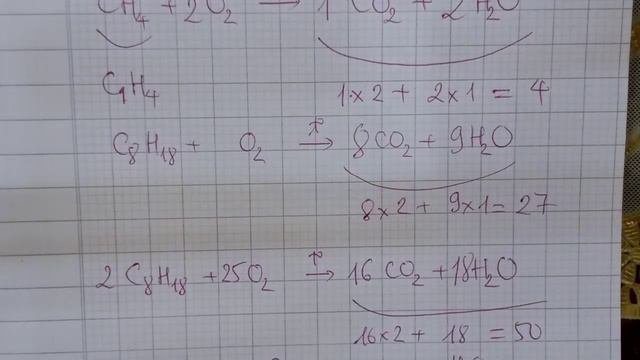 CH₄ + 2O₂ → 1 CO₂ + 2H₂O
C₁H₄ 1×2 + 2×1 = 4
C₈H₁₈ + O₂ → 8CO₂ + 9H₂O
8×2 + 9×1 = 27
2 C₈H₁₈ + 25O₂ → 16 CO₂ + 18H₂O
16×2 + 18 = 50